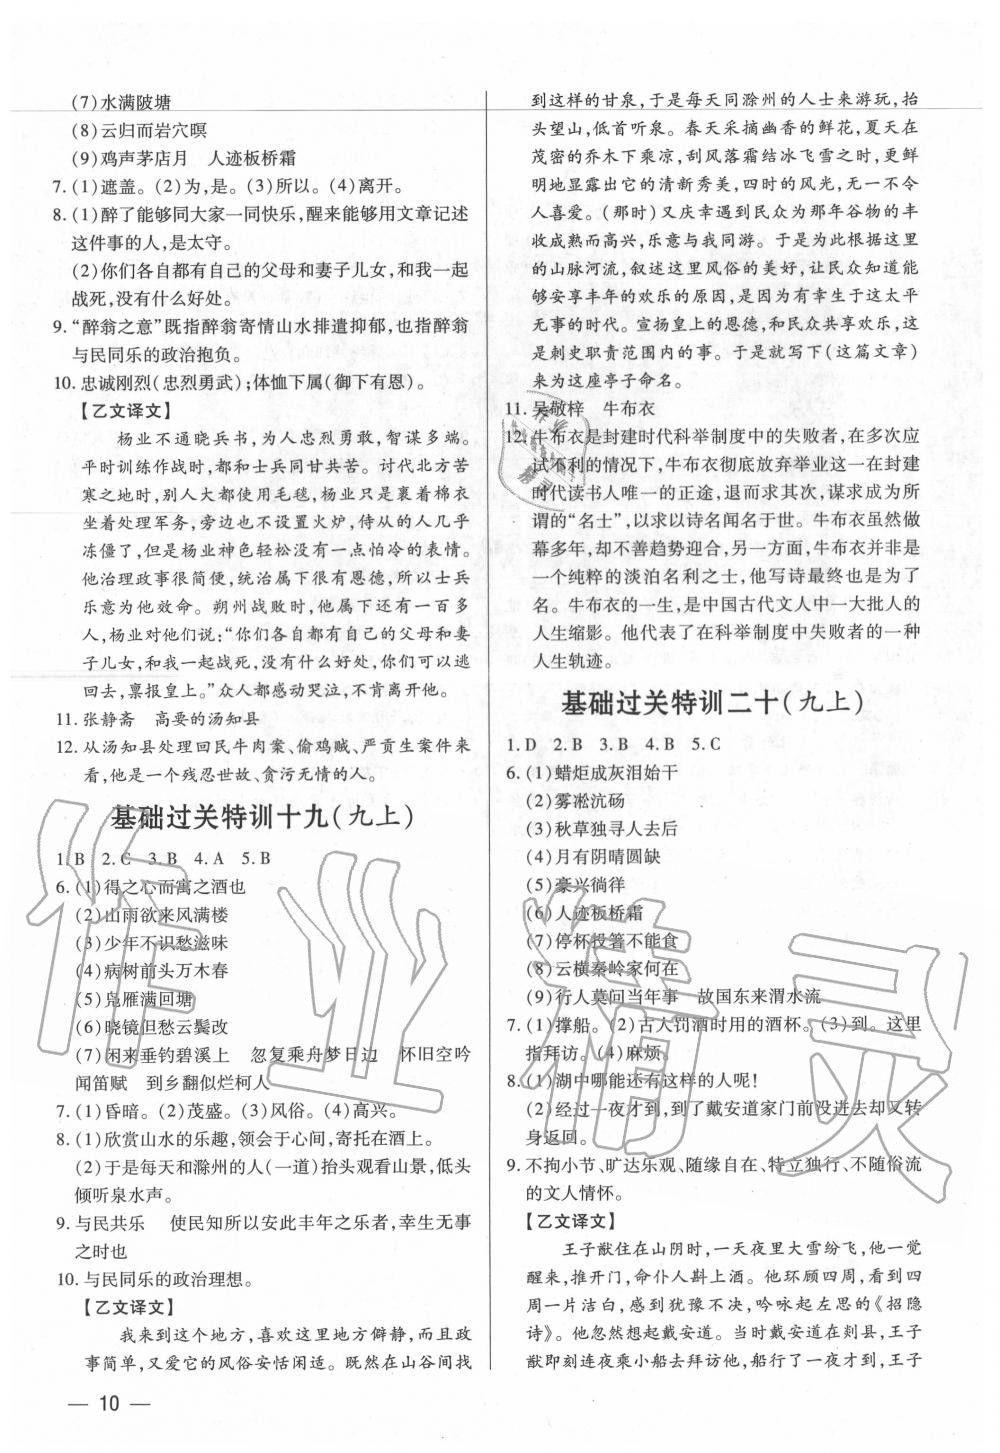 (7)水满陂塘
(8)云归而岩穴暝
(9)鸡声茅店月　人迹板桥霜
7. (1)遮盖。(2)为,是。(3)所以。(4)离开。
8. (1)醉了能够同大家一同快乐,醒来能够用文章记述
这件事的人,是太守。
(2)你们各自都有自己的父母和妻子儿女,和我一起
战死,没有什么好处。
9. “醉翁之意”既指醉翁寄情山水排遣抑郁,也指醉翁
与民同乐的政治抱负。
10. 忠诚刚烈(忠烈勇武);体恤下属(御下有恩)。
【乙文译文】
杨业不通晓兵书,为人忠烈勇敢,智谋多端。
平时训练作战时,都和士兵同甘共苦。讨代北方苦
寒之地时,别人大都使用毛毯,杨业只是裹着棉衣
坐着处理军务,旁边也不设置火炉,侍从的人几乎
冻僵了,但是杨业神色轻松没有一点怕冷的表情。
他治理政事很简便,统治属下很有恩德,所以士兵
乐意为他效命。朔州战败时,他属下还有一百多
人,杨业对他们说:“你们各自都有自己的父母和妻
子儿女,和我一起战死,没有什么好处,你们可以逃
回去,禀报皇上。”众人都感动哭泣,不肯离开他。
11. 张静斋　高要的汤知县
12. 从汤知县处理回民牛肉案、偷鸡贼、严贡生案件来
看,他是一个残忍世故、贪污无情的人。
基础过关特训十九(九上)
1. B　2. C　3. B　4. A　5. B
6. (1)得之心而寓之酒也
(2)山雨欲来风满楼
(3)少年不识愁滋味
(4)病树前头万木春
(5)凫雁满回塘
(6)晓镜但愁云鬓改
(7)闲来垂钓碧溪上　忽复乘舟梦日边　怀旧空吟
闻笛赋　到乡翻似烂柯人
7. (1)昏暗。(2)茂盛。(3)风俗。(4)高兴。
8. (1)欣赏山水的乐趣,领会于心间,寄托在酒上。
(2)于是每天和滁州的人(一道)抬头观看山景,低头
倾听泉水声。
9. 与民共乐　使民知所以安此丰年之乐者,幸生无事
之时也
10. 与民同乐的政治理想。
【乙文译文】
我来到这个地方,喜欢这里地方僻静,而且政
事简单,又爱它的风俗安恬闲适。既然在山谷间找
— 10 —
到这样的甘泉,于是每天同滁州的人士来游玩,抬
头望山,低首听泉。春天采摘幽香的鲜花,夏天在
茂密的乔木下乘凉,刮风落霜结冰飞雪之时,更鲜
明地显露出它的清新秀美,四时的风光,无一不令
人喜爱。(那时)又庆幸遇到民众为那年谷物的丰
收成熟而高兴,乐意与我同游。于是为此根据这里
的山脉河流,叙述这里风俗的美好,让民众知道能
够安享丰年的欢乐的原因,是因为有幸生于这太平
无事的时代。宣扬皇上的恩德,和民众共享欢乐,这
是刺史职责范围内的事。于是就写下(这篇文章)
来为这座亭子命名。
11. 吴敬梓　牛布衣
12. 牛布衣是封建时代科举制度中的失败者,在多次应
试不利的情况下,牛布衣彻底放弃举业这一在封建
时代读书人唯一的正途,退而求其次,谋求成为所
谓的“名士”,以求以诗名闻名于世。牛布衣虽然做
幕多年,却不善趋势迎合,另一方面,牛布衣并非是
一个纯粹的淡泊名利之士,他写诗最终也是为了
名。牛布衣的一生,是中国古代文人中一大批人的
人生缩影。他代表了在科举制度中失败者的一种
人生轨迹。
基础过关特训二十(九上)
1. D　2. B　3. B　4. B　5. C
6. (1)蜡炬成灰泪始干
(2)雾凇沆砀
(3)秋草独寻人去后
(4)月有阴晴圆缺
(5)豪兴徜徉
(6)人迹板桥霜
(7)停杯投箸不能食
(8)云横秦岭家何在
(9)行人莫问当年事　故国东来渭水流
7. (1)撑船。(2)古人罚酒时用的酒杯。(3)到。这里
指拜访。(4)麻烦。
8. (1)湖中哪能还有这样的人呢!
(2)经过一夜才到,到了戴安道家门前没进去却又转
身返回。
9. 不拘小节、旷达乐观、随缘自在、特立独行、不随俗流
的文人情怀。
【乙文译文】
王子猷住在山阴时,一天夜里大雪纷飞,他一觉
醒来,推开门,命仆人斟上酒。他环顾四周,看到四
周一片洁白,感到犹豫不决,吟咏起左思的《招隐
诗》。他忽然想起戴安道。当时戴安道在剡县,王子
猷即刻连夜乘小船去拜访他,船行了一夜才到,王子
作业精灵